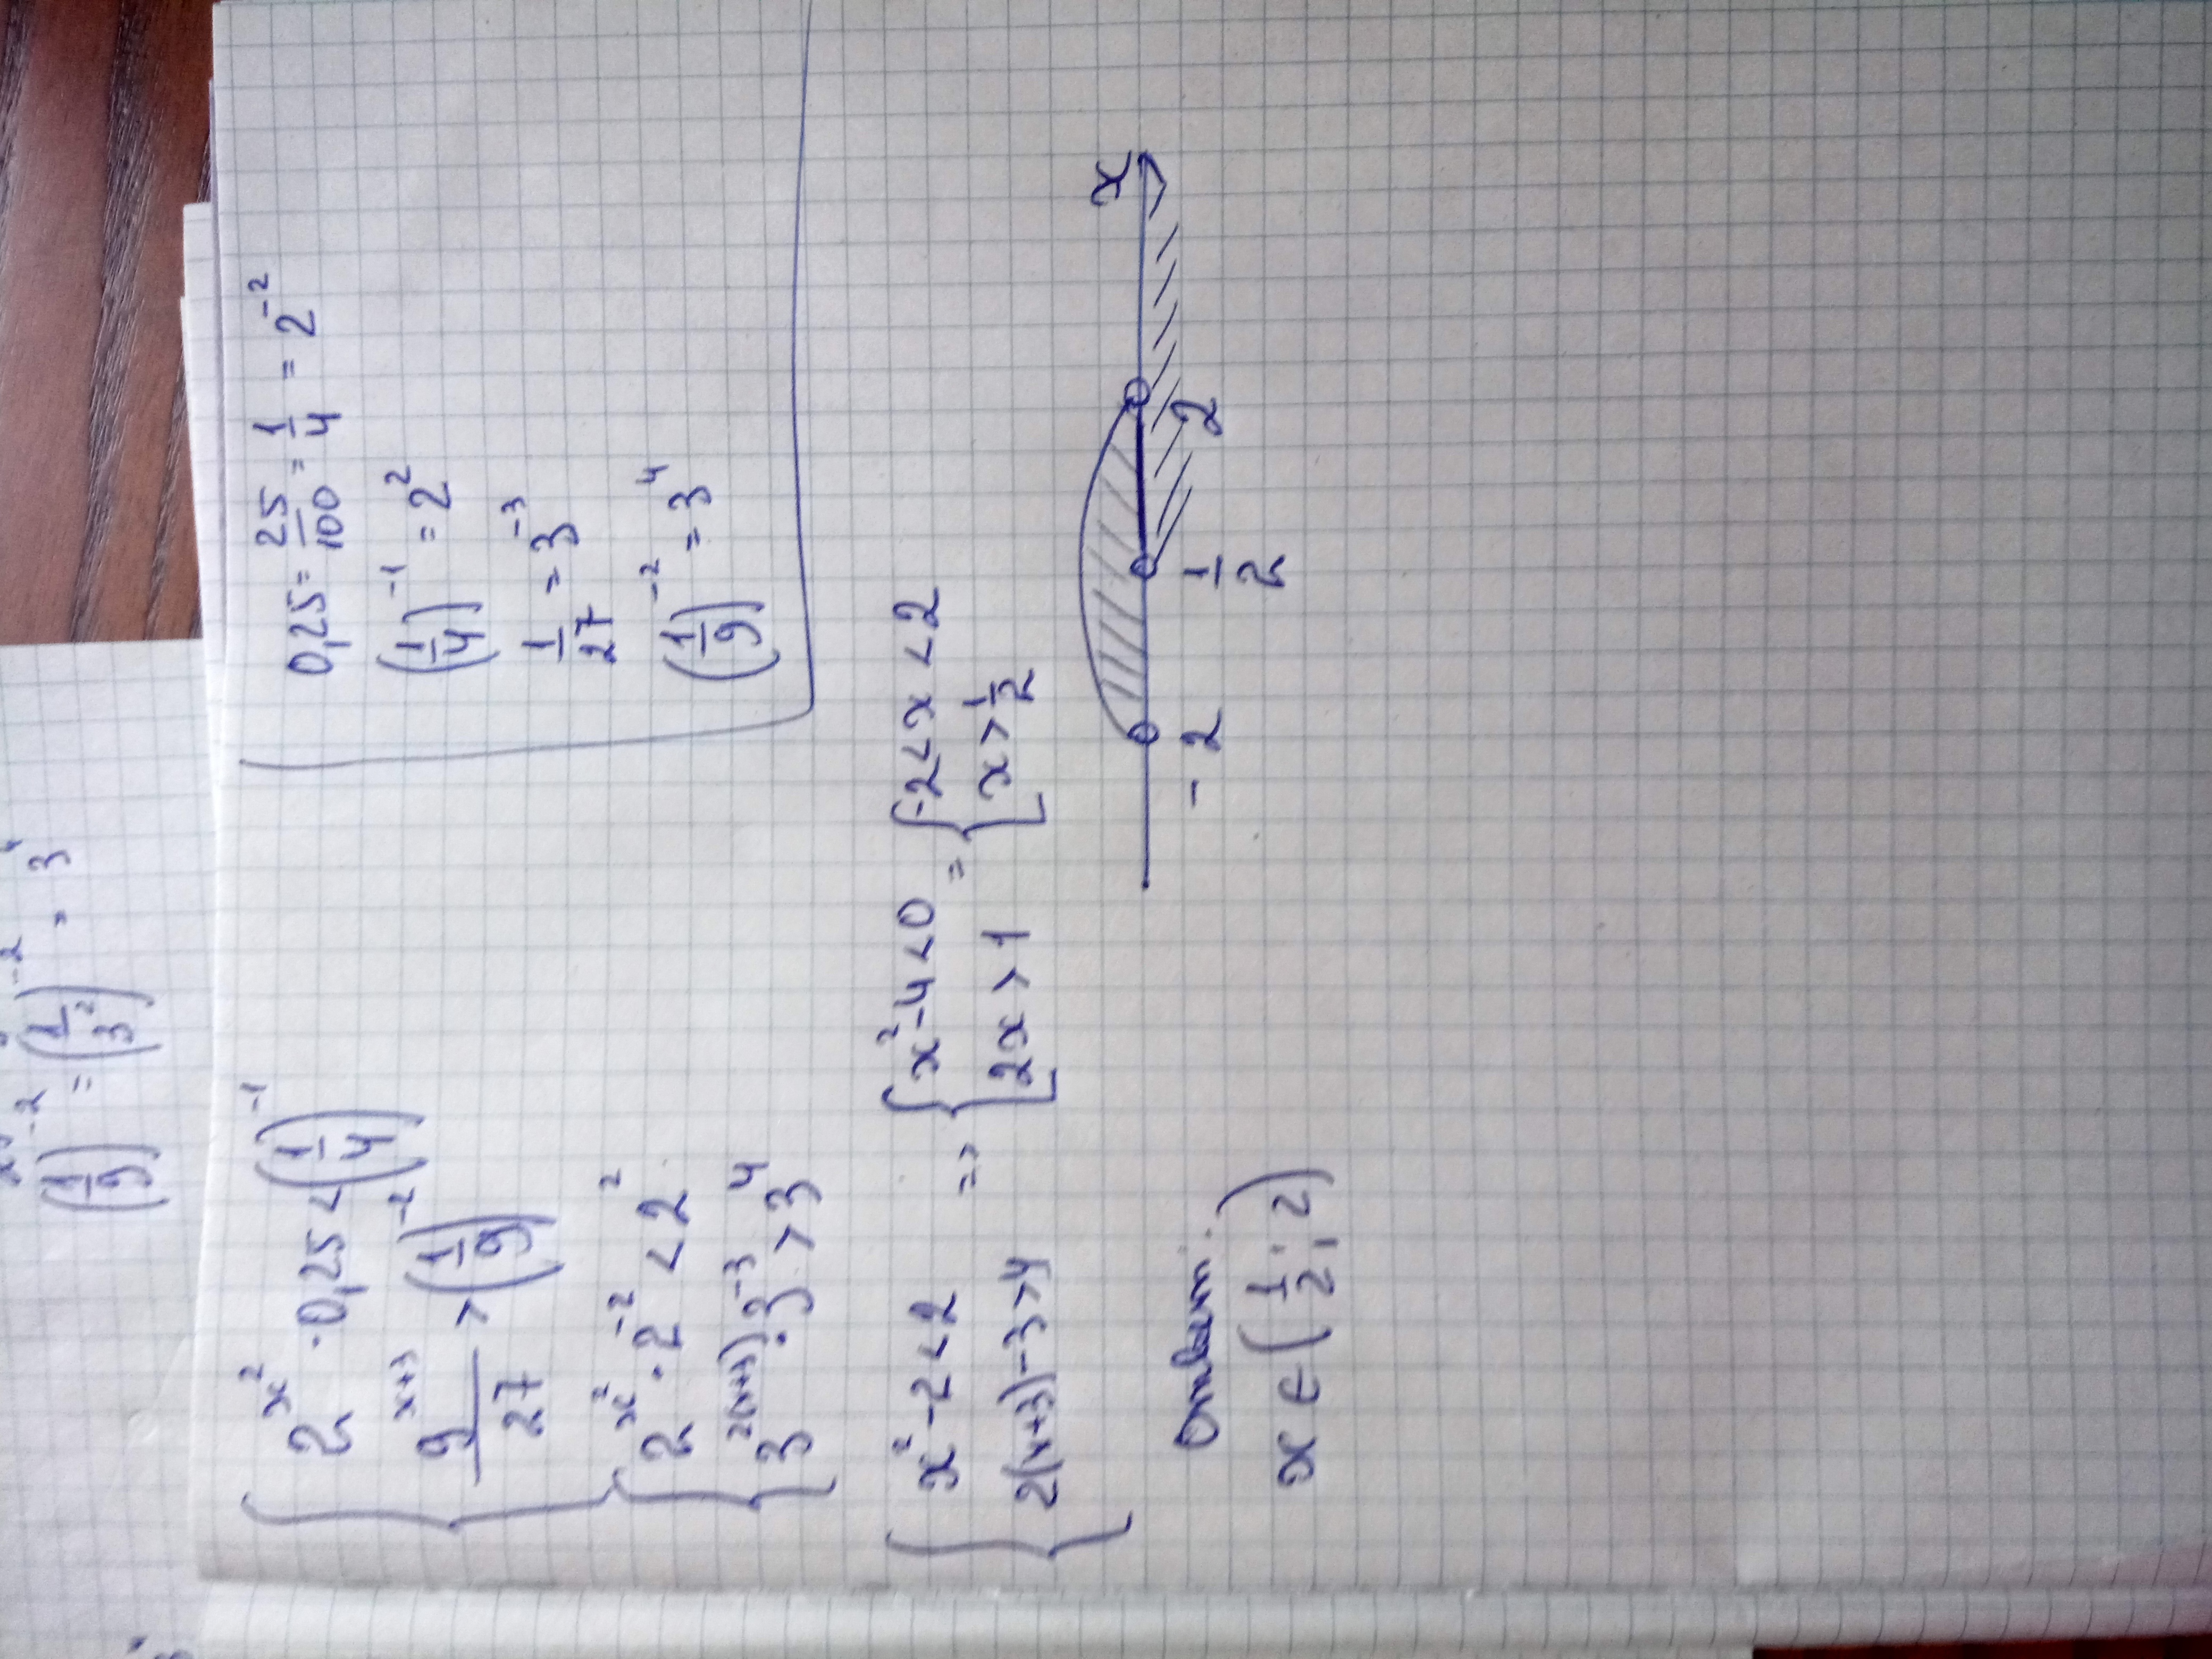 (1/9)^-2 = (1/3^2)^-2 = 3^4
{ 2^x^2 · 0,25 < (1/4)^-1
9^x+3 / 27 > (1/9)^-2
{ 2^x^2 · 2^-2 < 2^2
3^2(x+3) · 3^-3 > 3^4
0,25 = 25/100 = 1/4 = 2^-2
(1/4)^-1 = 2^2
1/27 = 3^-3
(1/9)^-2 = 3^4
{ x^2 - 2 < 2 => { x^2 - 4 < 0 = { -2 < x < 2
2(x+3) - 3 > 4 2x > 1 x > 1/2
x
-2 1/2 2
Ответ:
x ∈ (1/2; 2)